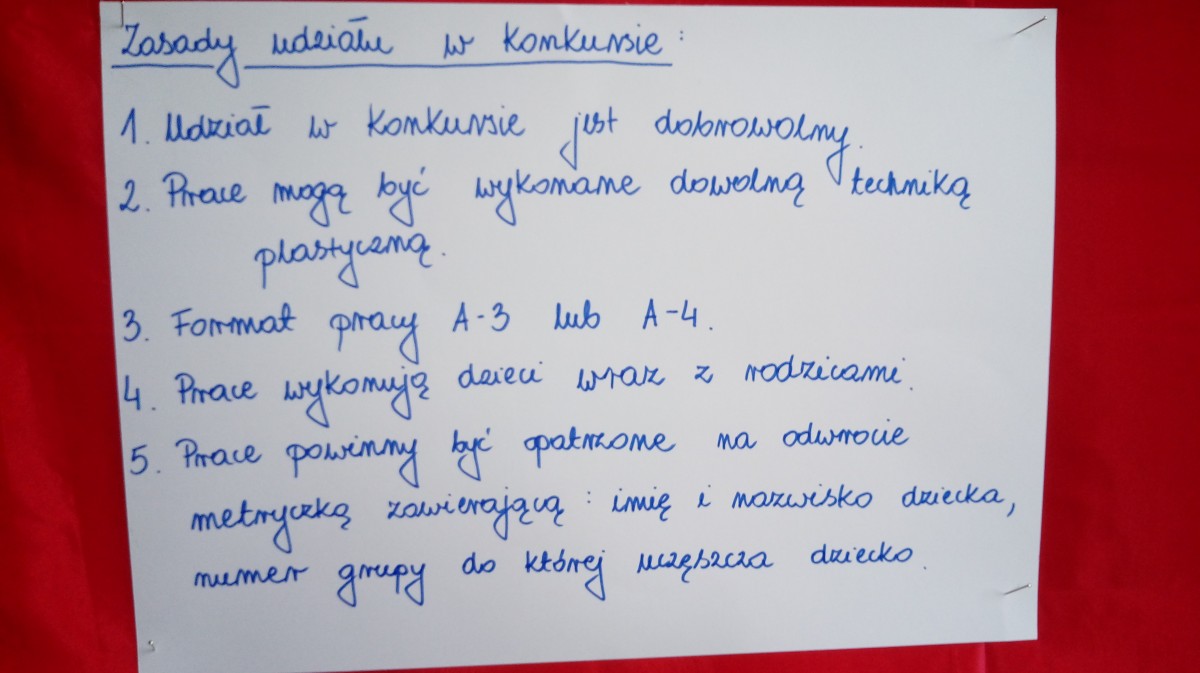 Zasady udziału w konkursie:
1. Udział w konkursie jest dobrowolny.
2. Prace mogą być wykonane dowolną techniką
plastyczną.
3. Format pracy A-3 lub A-4.
4. Prace wykonują dzieci wraz z rodzicami.
5. Prace powinny być opatrzone na odwrocie
metryczką zawierającą: imię i nazwisko dziecka,
numer grupy do której uczęszcza dziecko.